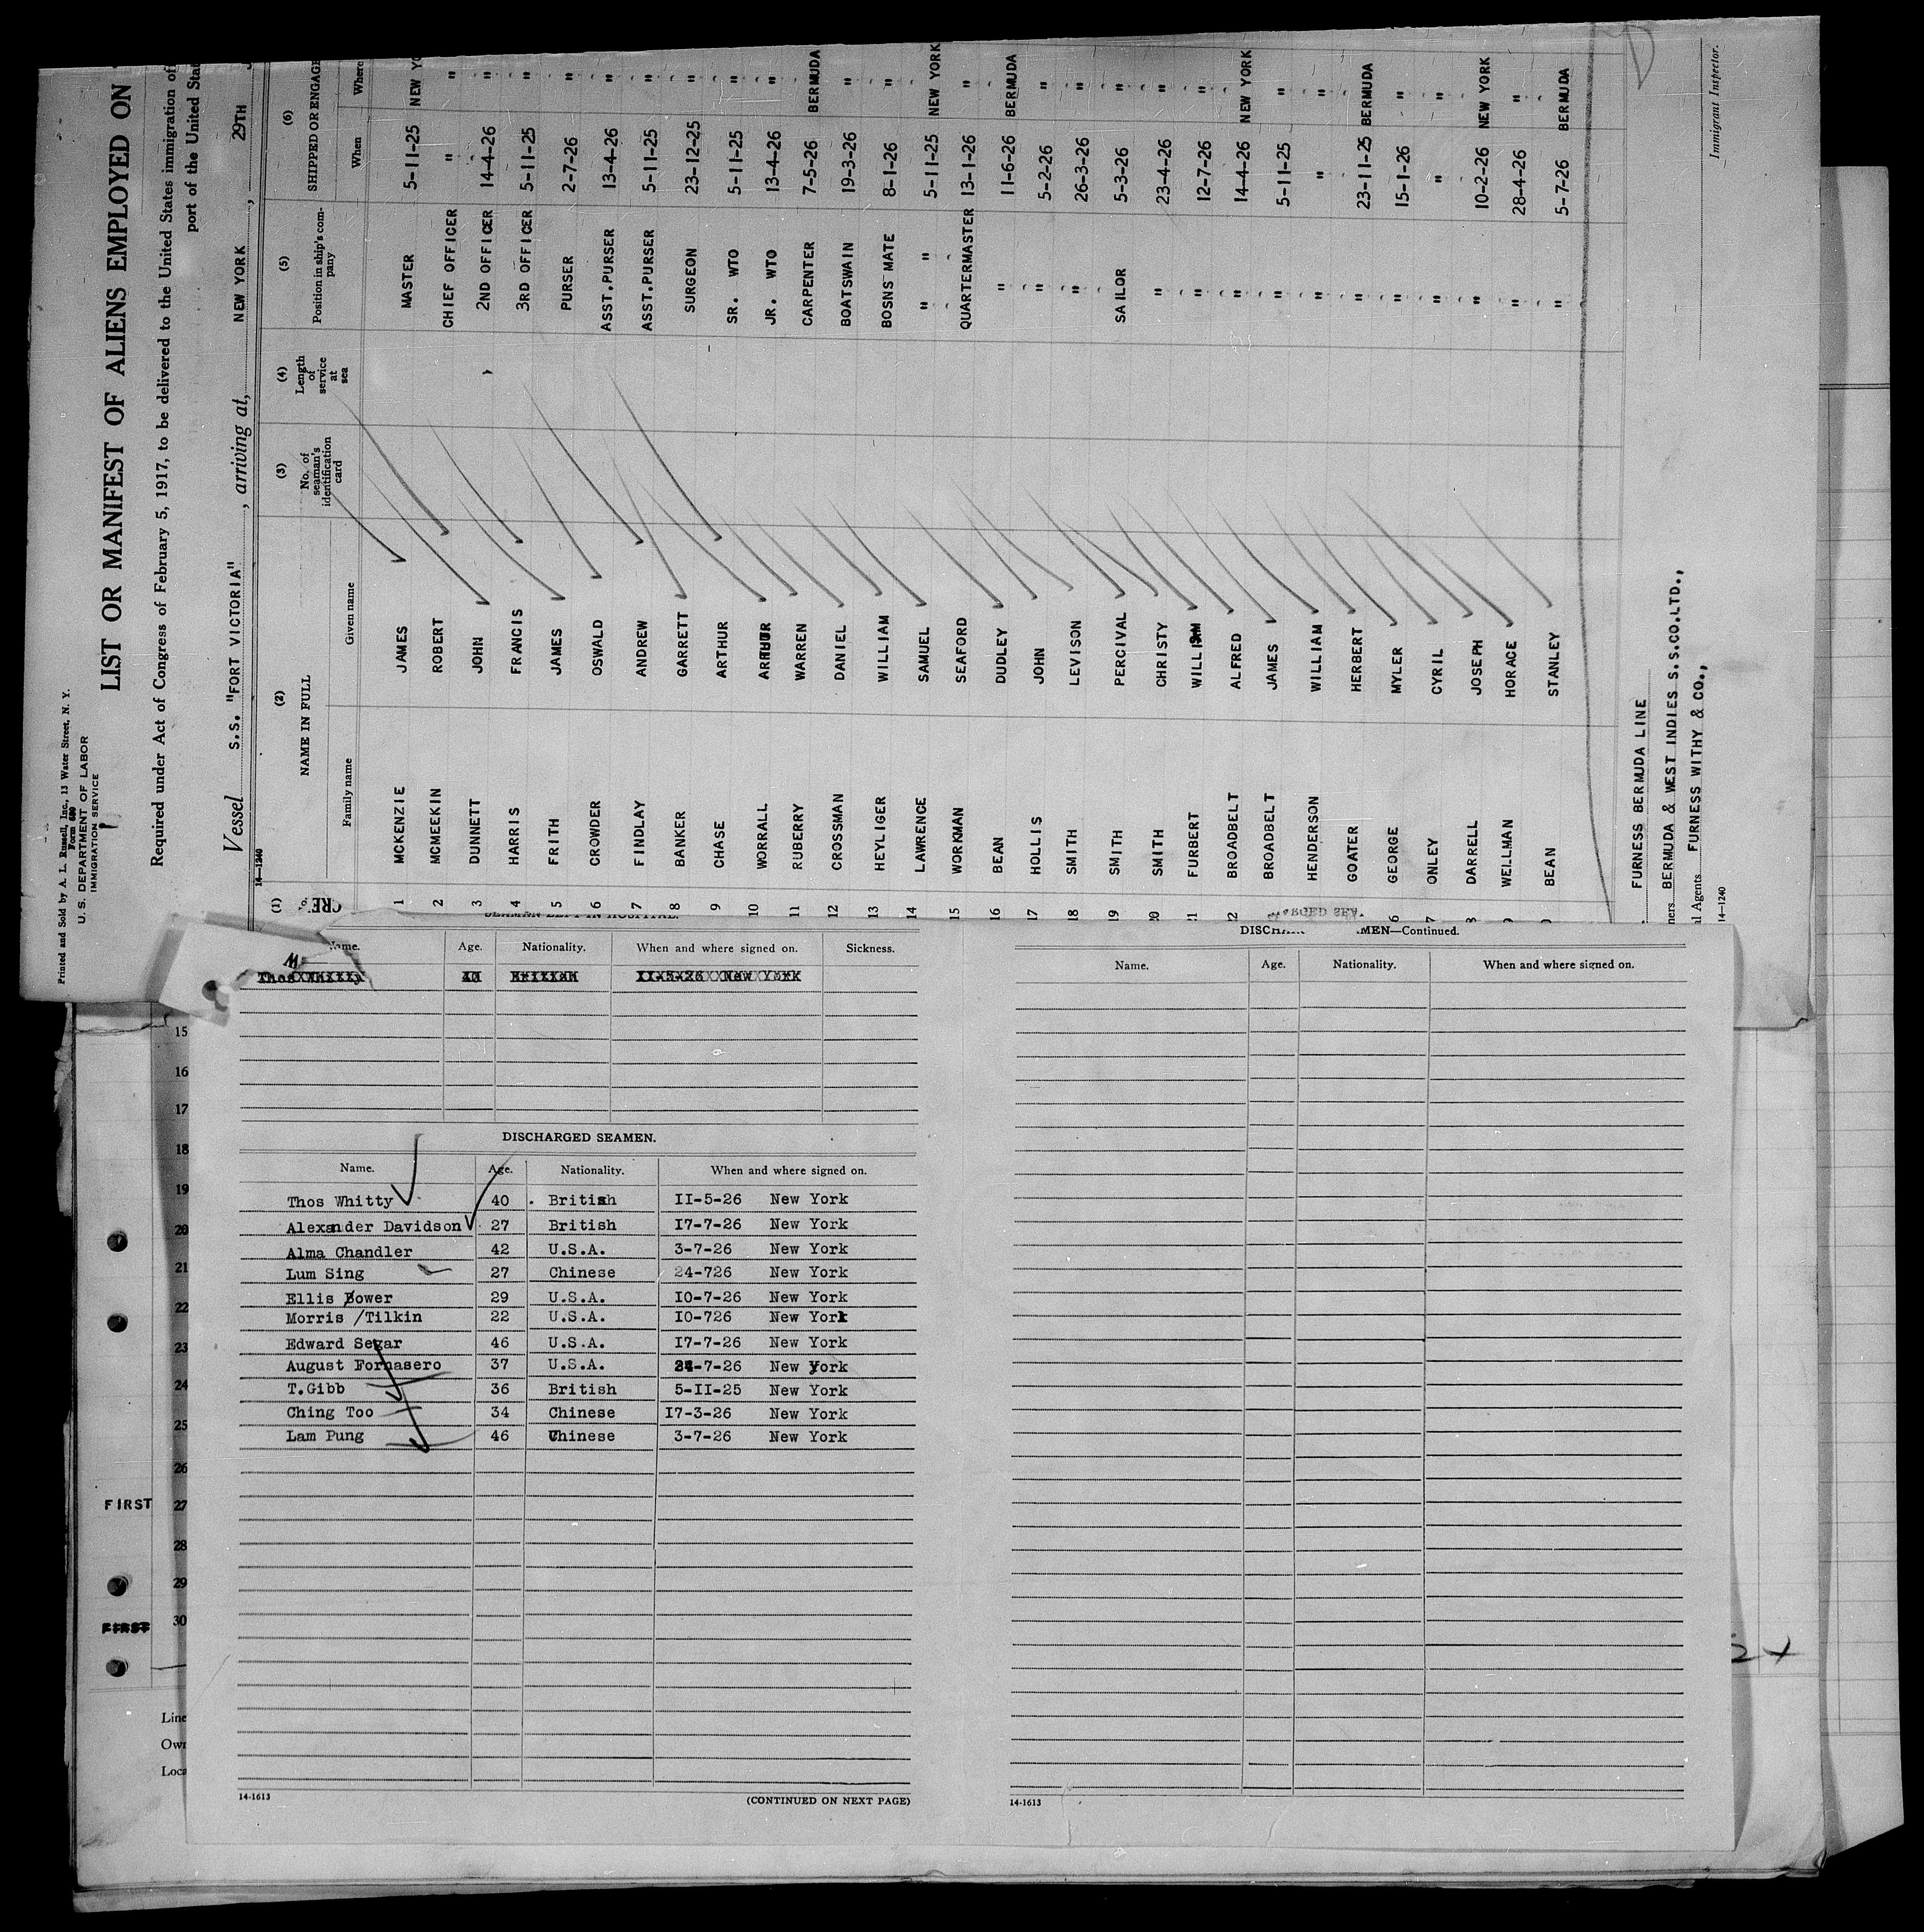 Printed and Sold by A. L. Russell, Inc., 13 Water Street, N. Y.
Form 680
U. S. DEPARTMENT OF LABOR
IMMIGRATION SERVICE
LIST OR MANIFEST OF ALIENS EMPLOYED ON
Required under Act of Congress of February 5, 1917, to be delivered to the United States immigration of
port of the United Stat
Vessel S.S. "FORT VICTORIA" , arriving at, NEW YORK , 29TH
14—1240
(1) (2) (3) (4) (5) (6)
NAME IN FULL No. of seaman's identification card Length of service at sea Position in ship's company SHIPPED OR ENGAGE
Family name Given name When Where
1 MCKENZIE JAMES MASTER 5-11-25 NEW YO
2 MCMEEKIN ROBERT CHIEF OFFICER " "
3 DUNNETT JOHN 2ND OFFICER 14-4-26 "
4 HARRIS FRANCIS 3RD OFFICER 5-11-25 "
5 FRITH JAMES PURSER 2-7-26 "
6 CROWDER OSWALD ASST.PURSER 13-4-26 "
7 FINDLAY ANDREW ASST.PURSER 5-11-25 "
8 BANKER GARRETT SURGEON 23-12-25 "
9 CHASE ARTHUR SR. WTO 5-11-25 "
10 WORRALL ARTHUR JR. WTO 13-4-26 "
11 RUBERRY WARREN CARPENTER 7-5-26 BERMUDA
12 CROSSMAN DANIEL BOATSWAIN 19-3-26 "
13 HEYLIGER WILLIAM BOSNS MATE 8-1-26 "
14 LAWRENCE SAMUEL " " 5-11-25 NEW YORK
15 WORKMAN SEAFORD QUARTERMASTER 13-1-26 "
16 BEAN DUDLEY " 11-6-26 BERMUDA
17 HOLLIS JOHN " 5-2-26 "
18 SMITH LEVISON " 26-3-26 "
19 SMITH PERCIVAL SAILOR 5-3-26 "
20 SMITH CHRISTY " 23-4-26 "
21 FURBERT WILLIAM " 12-7-26 "
22 BROADBELT ALFRED " 14-4-26 NEW YORK
BROADBELT JAMES " 5-11-25 "
HENDERSON WILLIAM " " "
GOATER HERBERT " 23-11-25 BERMUDA
6 GEORGE MYLER " 15-1-26 "
7 ONLEY CYRIL " " "
8 DARRELL JOSEPH " 10-2-26 NEW YORK
9 WELLMAN HORACE " 28-4-26 "
0 BEAN STANLEY " 5-7-26 BERMUDA
FURNESS BERMUDA LINE
ners BERMUDA & WEST INDIES S.S.CO.LTD.,
l Agents FURNESS WITHY & CO.,
14—1240
Immigrant Inspector.
SEAMEN LEFT IN HOSPITAL.
Name. Age. Nationality. When and where signed on. Sickness.
Thos Whitty 40 British II-5-26 New York
DISCHARGED SEAMEN.
Name. Age. Nationality. When and where signed on.
Thos Whitty 40 British II-5-26 New York
Alexander Davidson 27 British I7-7-26 New York
Alma Chandler 42 U.S.A. 3-7-26 New York
Lum Sing 27 Chinese 24-726 New York
Ellis Bower 29 U.S.A. I0-7-26 New York
Morris /Tilkin 22 U.S.A. I0-726 New York
Edward Segar 46 U.S.A. I7-7-26 New York
August Fornasero 37 U.S.A. 24-7-26 New York
T.Gibb 36 British 5-II-25 New York
Ching Too 34 Chinese I7-3-26 New York
Lam Pung 46 Chinese 3-7-26 New York
14-1613 (CONTINUED ON NEXT PAGE)
MEN—Continued.
Name. Age. Nationality. When and where signed on.
14-1613
15
16
17
18
19
20
21
22
23
24
25
26
FIRST 27
28
29
FIRST 30
Line
Own
Loca